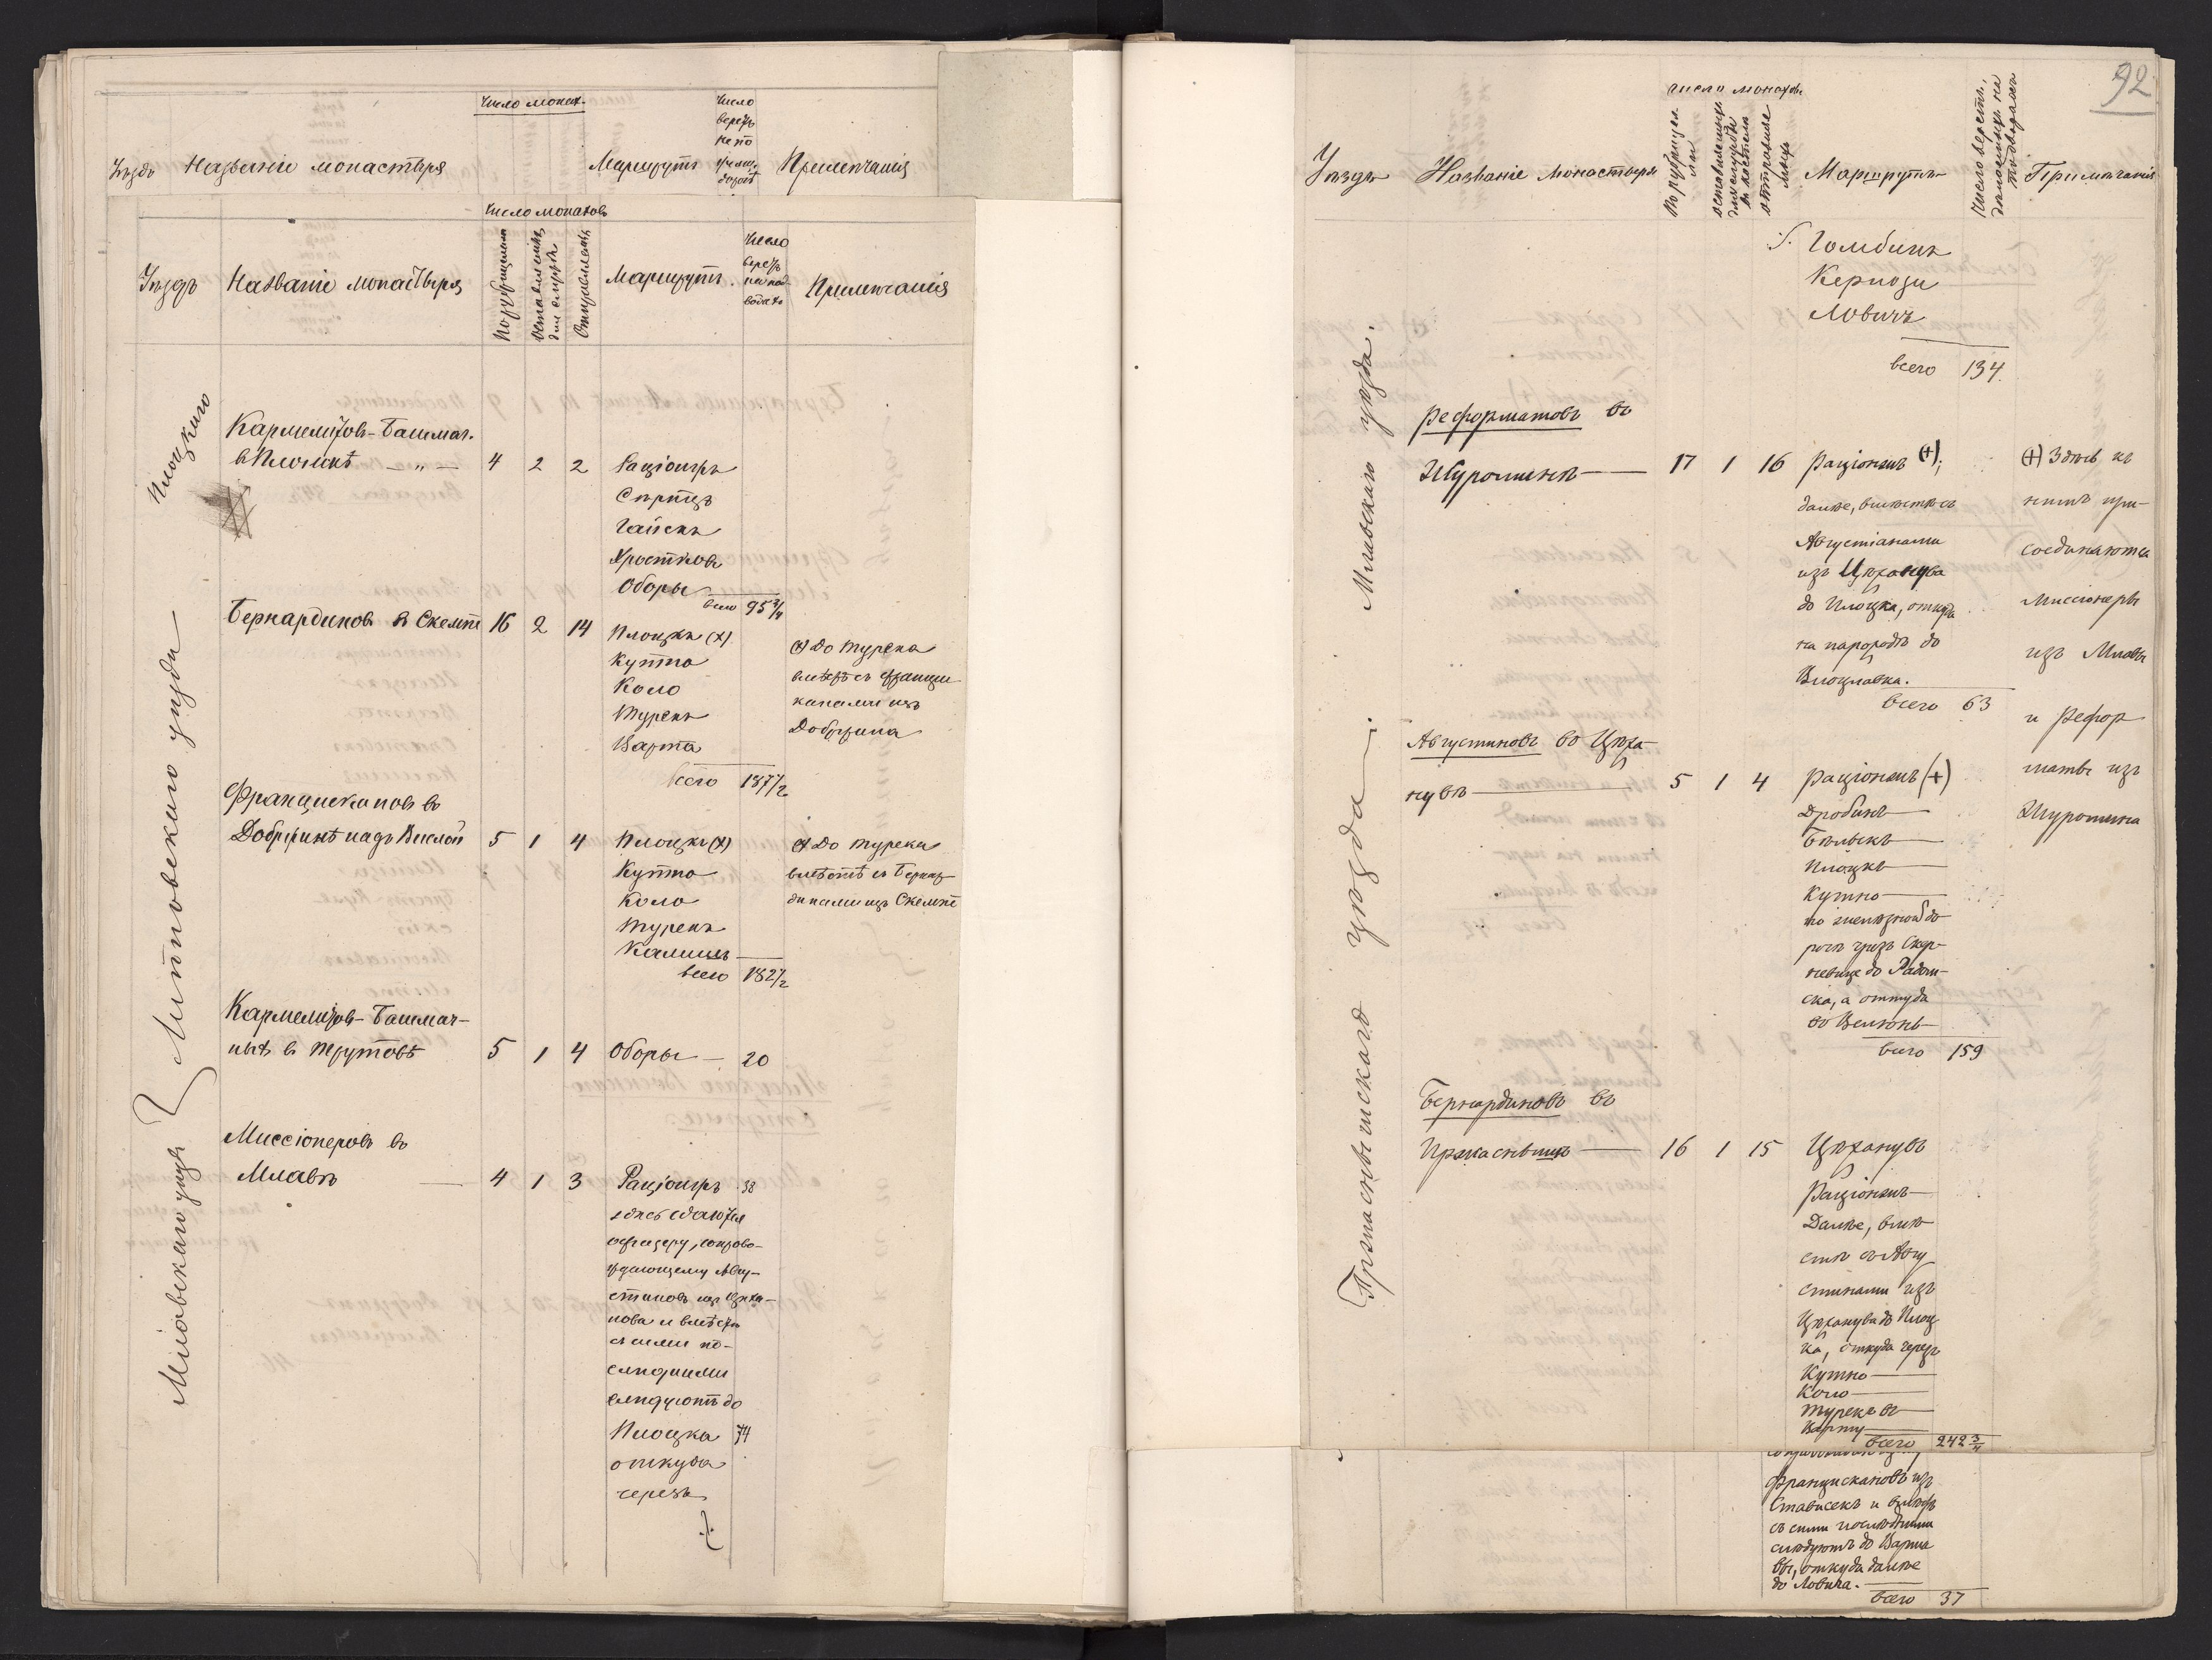 Число монах.
Число
верстъ
Уѣздъ
Названіе монастыря
Маршрутъ
Примѣчанія
Число монаховъ
Уѣздъ
Названіе монастыря
Отправляемыхъ
Маршрутъ
Число
верстъ
Примѣчанія
Плоцкаго
Липновскаго уѣзда
Млавскаго уѣзда
Кармелитовъ-Башмач.
въ Плонскѣ — „ — 4 2 2 Раціонжъ
Серпецъ
Гайскъ
Хростково
Оборы
всего 95 3/4
Бернардиновъ въ Скемпе 16 2 14 Плоцкъ (х)
Кутно
Коло
Турекъ
Варта
всего 187 1/2
(х) До Турека
вмѣстѣ съ Францис
канами изъ
Добржина
Францискановъ въ
Добржинѣ надъ Вислой 5 1 4 Плоцкъ (х)
Кутно
Коло
Турекъ
Калишъ
всего 182 1/2
(х) До Турека
вмѣстѣ съ Бернар-
динами изъ Скемпе
Кармелитовъ-Башмач-
ныхъ въ Трутовѣ 5 1 4 Оборы — 20
Миссіонеровъ въ
Млавѣ — 4 1 3 Раціонжъ 38
здѣсь сдаются
офицеру, сопрово-
ждающему Авгу-
стиновъ изъ Цѣха-
нова и вмѣстѣ
съ сими по-
слѣдними
слѣдуютъ до
Плоцка 74
откуда
черезъ
./.
92
Число монаховъ
Уѣздъ
Названіе Монастыря
По рубрицел
ли
оставляемыхъ
отправляе
мыхъ
Маршрутъ
Число верстъ,
Примѣчанія
./. Гомбинъ
Кернози
Ловичъ
всего 134.
Млавскаго уѣзда.
Реформатовъ въ
Журоминѣ — 17 1 16 Раціонжъ (+),
далѣе, вмѣстѣ съ
Августіанами
изъ Цѣханува
до Плоцка, откуда
на пароходѣ до
Влоцлавка.
всего 63
(+) Здѣсь къ
нимъ при-
соединяются
Миссіонеры
изъ Млавы
и Рефор
маты изъ
Журомина
Праснышскаго уѣзда
Августиновъ въ Цѣха
нувѣ — 5 1 4 Раціонжъ (+)
Дробинъ
Бѣльскъ
Плоцкъ
Кутно
по желѣзной до
рогѣ чрезъ Скер-
невице до Радом-
ска, а оттуда
въ Велюнь
всего 159
Бернардиновъ въ
Пржаснышѣ — 16 1 15 Цѣханувъ
Раціонжъ
Далѣе, вмѣ
стѣ съ Авгу
стинами изъ
Цѣханува до Плоц
ка, откуда черезъ
Кутно
Коло
Турекъ въ
Варту
всего 242 3/4
Францискановъ изъ
Стависекъ и вмѣстѣ
съ сими послѣдними
слѣдуютъ до Варша
вы, откуда далѣе
до Ловича.
всего 37